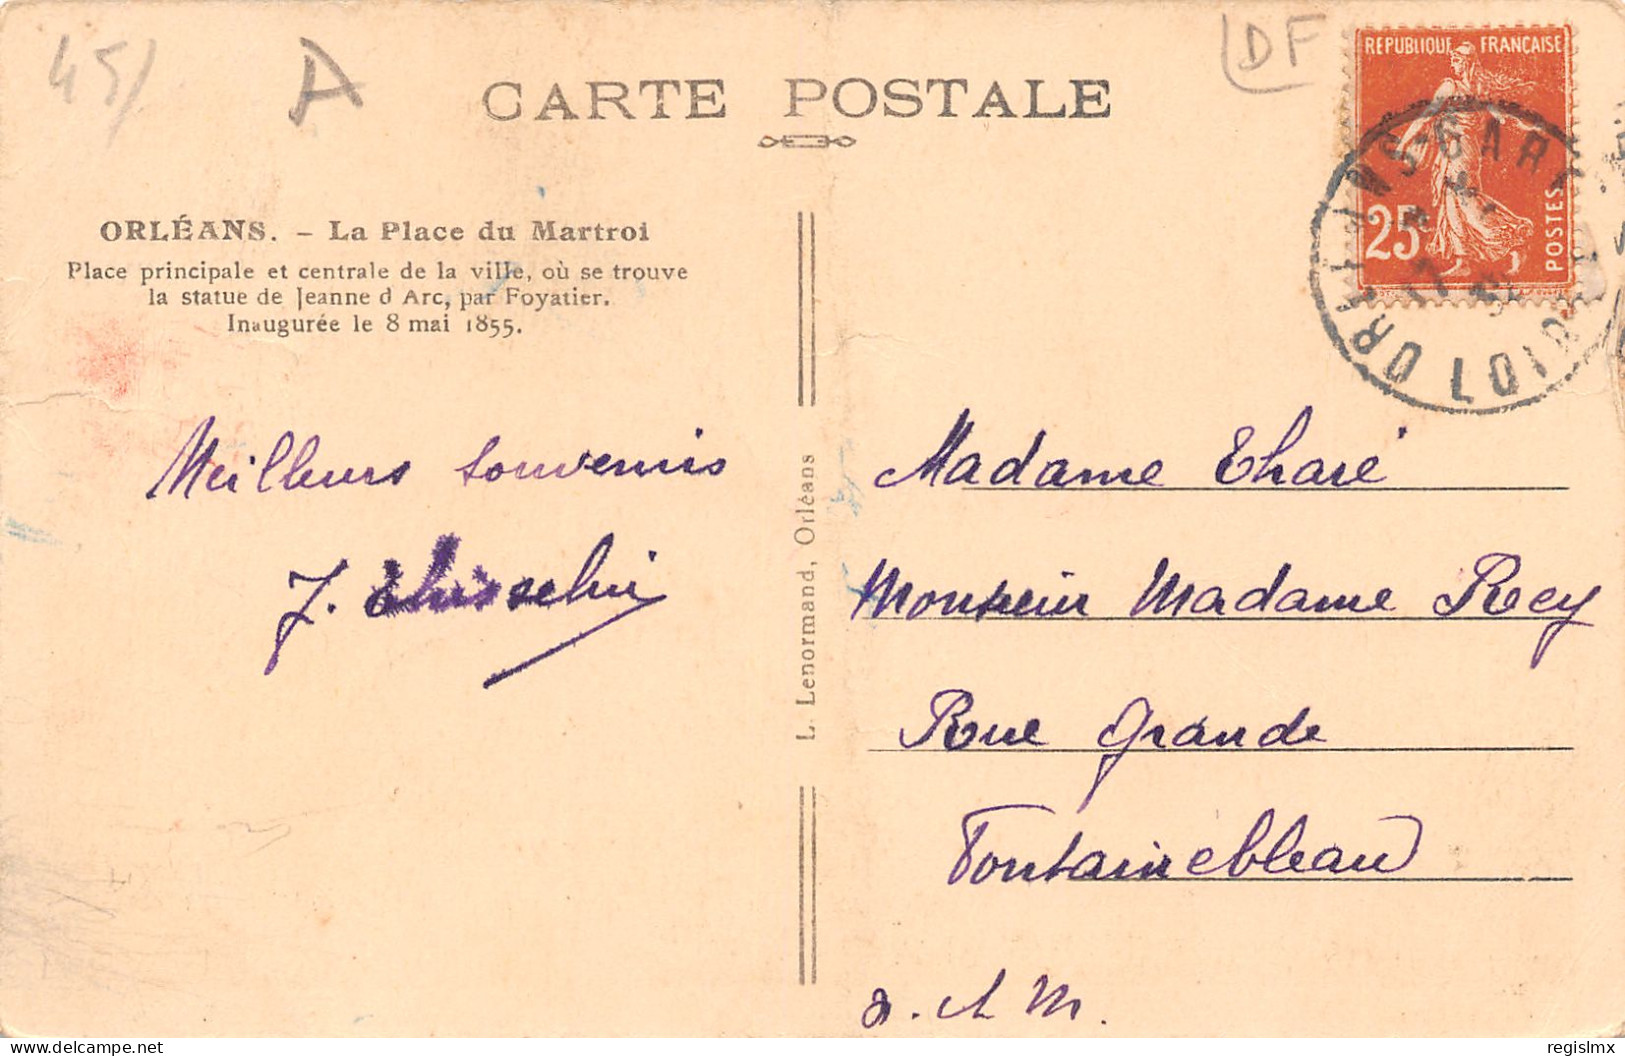 45/
A
DF
CARTE POSTALE
REPUBLIQUE FRANÇAISE
25c
POSTES
ORLÉANS-GARE
LOIRET
ORLÉANS. – La Place du Martroi
Place principale et centrale de la ville, où se trouve
la statue de Jeanne d Arc, par Foyatier.
Inaugurée le 8 mai 1855.
Meilleurs souvenirs
J.
L. Lenormand, Orléans
Madame Tharé
Monsieur Madame Recy
Rue Grande
Fontainebleau
S. & M.
regislmx